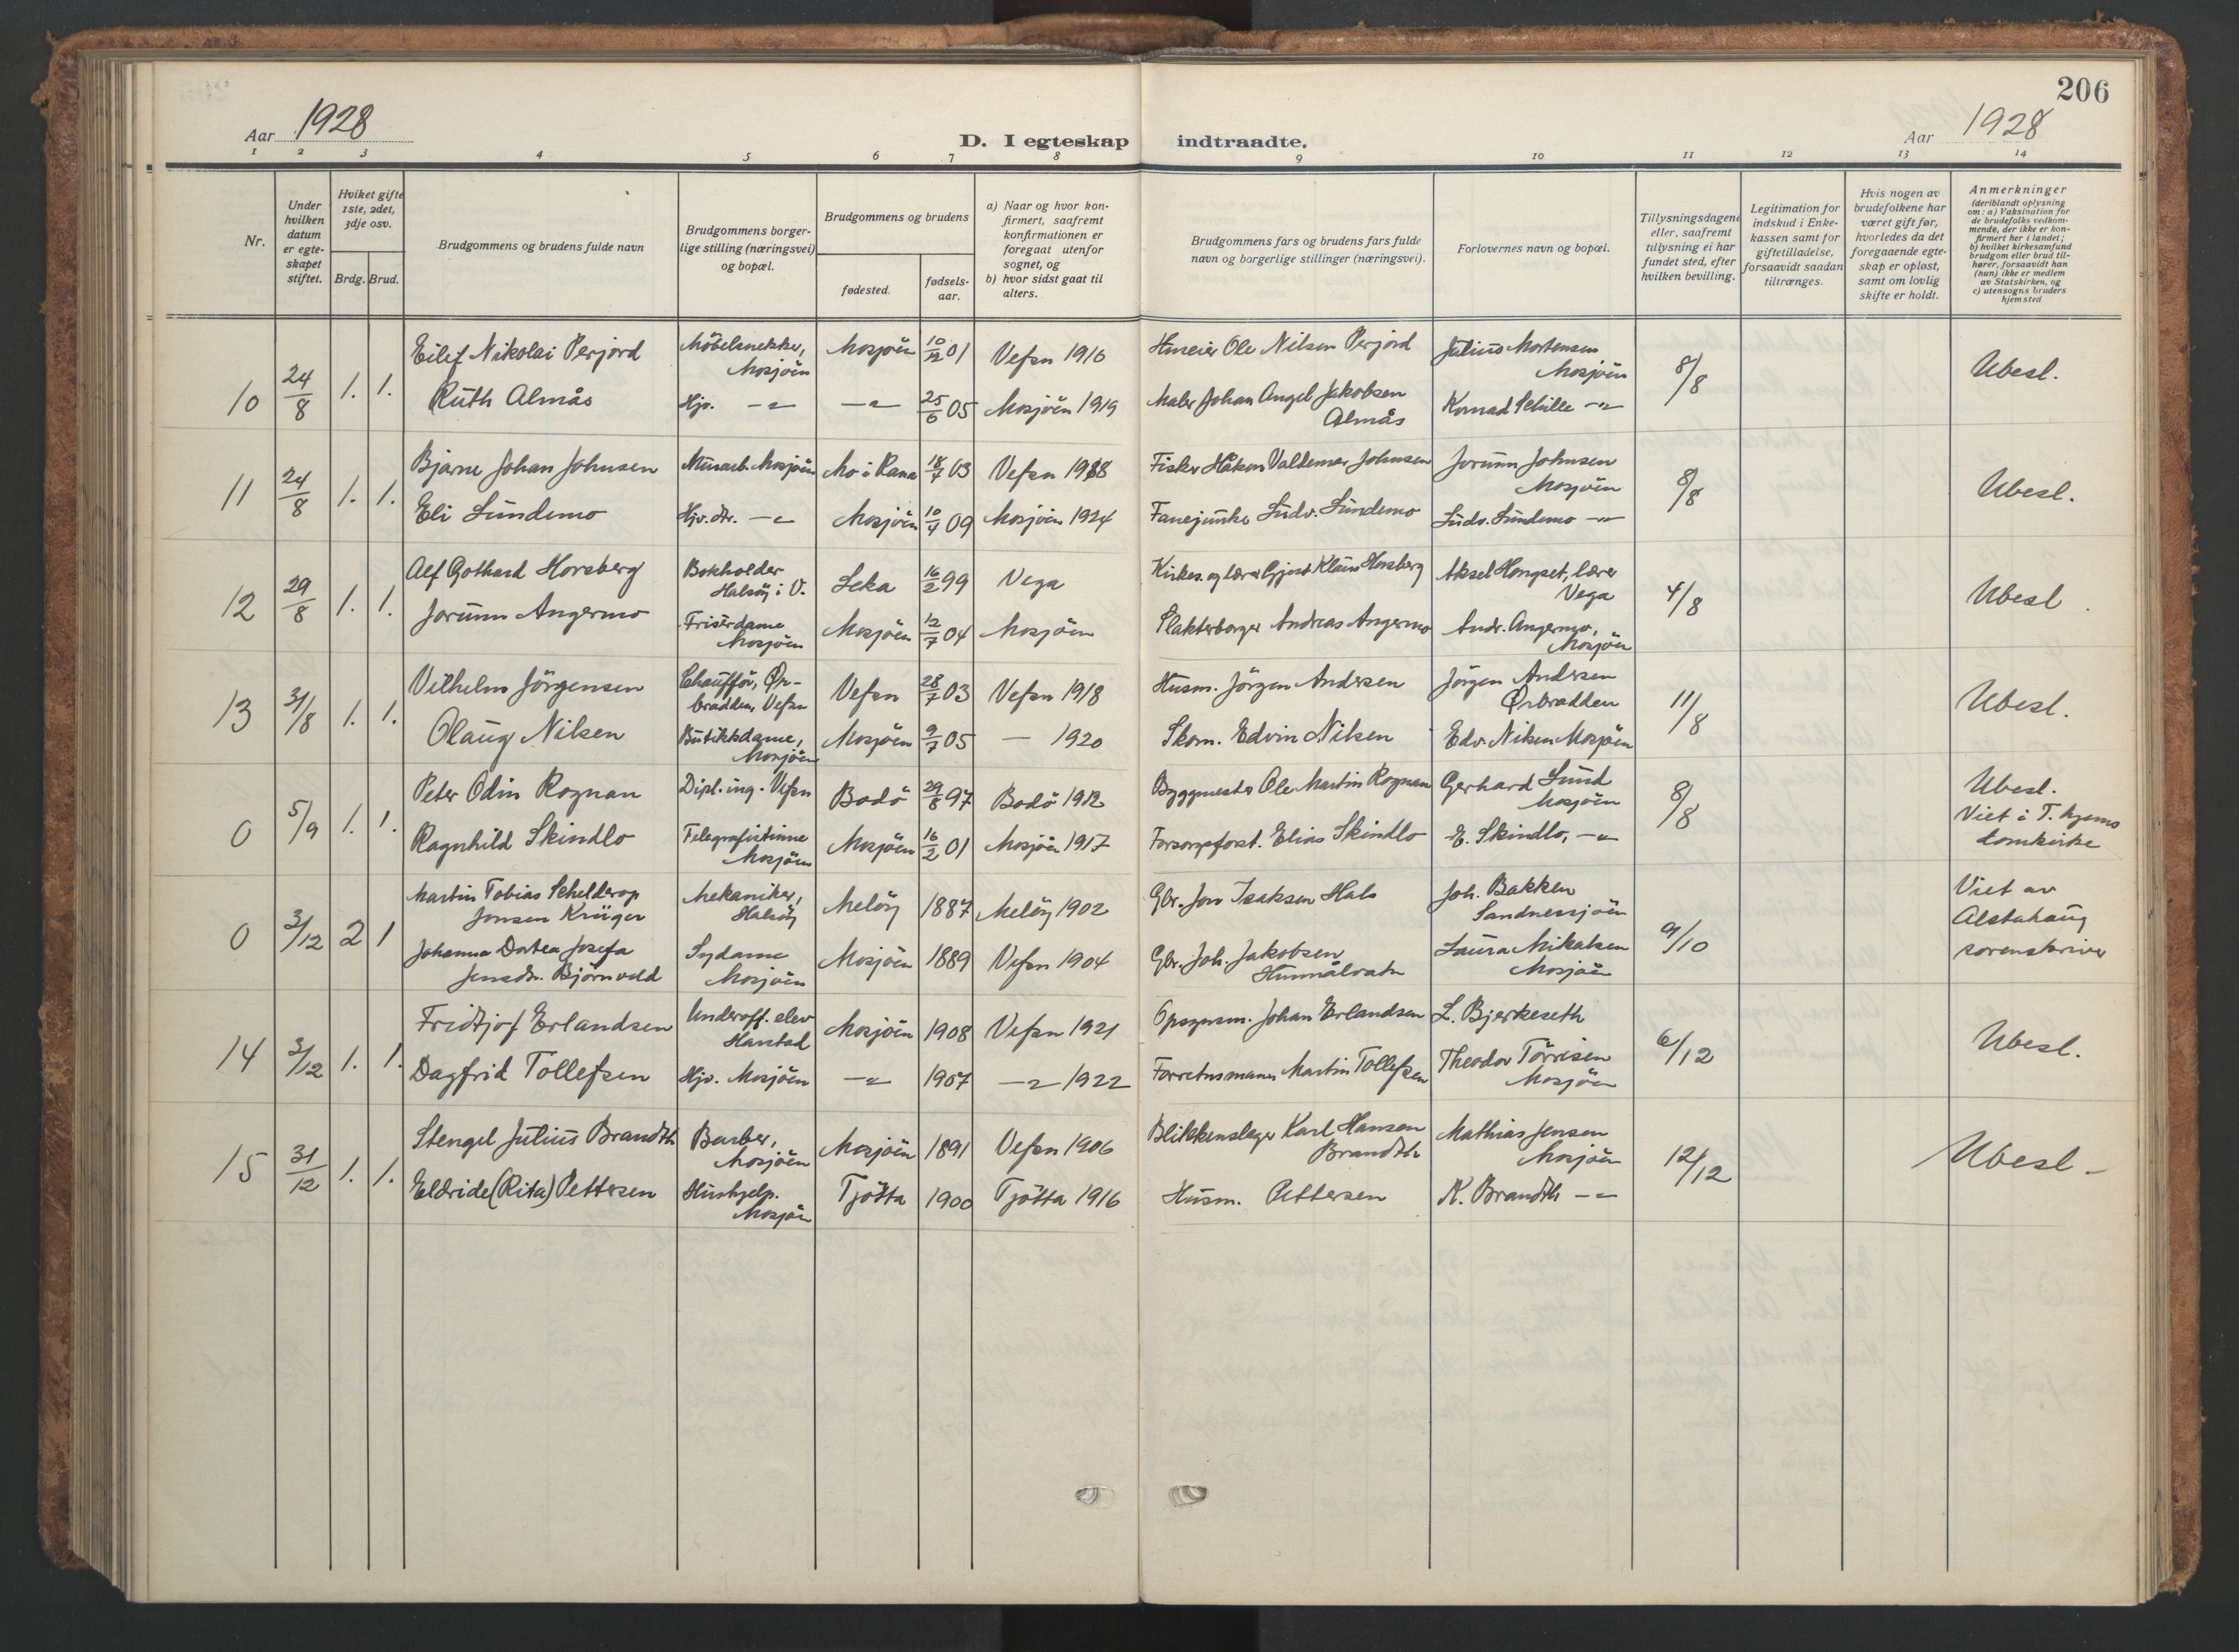 206
Aar 1928
D. I egteskap indtraadte.
Aar 1928
1 2 3 4 5 6 7 8 9 10 11 12 13 14
Nr.
Under hvilken datum er egteskapet stiftet.
Hviket gifte 1ste, 2det, 3dje osv.
Brdg. Brud.
Brudgommens og brudens fulde navn
Brudgommens borgerlige stilling (næringsvei) og bopæl.
Brudgommens og brudens
fødested.
fødselsaar.
a) Naar og hvor konfirmert, saafremt konfirmationen er foregaat utenfor sognet, og
b) hvor sidst gaat til alters.
Brudgommens fars og brudens fars fulde navn og borgerlige stillinger (næringsvei).
Forlovernes navn og bopæl.
Tillysningsdagene eller, saafremt tillysning ei har fundet sted, efter hvilken bevilling.
Legitimation for indskud i Enkekassen samt for giftetilladelse, forsaavidt saadan tiltrænges.
Hvis nogen av brudefolkene har været gift før, hvorledes da det foregaaende egteskap er opløst, samt om lovlig skifte er holdt.
Anmerkninger
(deriblandt oplysning om: a) Vaksination for de brudefolks vedkommende, der ikke er konfirmert her i landet;
b) hvilket kirkesamfund brudgom eller brud tilhører, forsaavidt han (hun) ikke er medlem av Statskirken, og
c) utensogns bruders hjemsted
10 24/8 1. 1.
Eilif Nikolai Perjord Möbelsnekker, Mosjöen Mosjöen 10/12 01 Vefsn 1916 Huseier Ole Nilsen Perjord Julius Mortensen Mosjöen 8/8 Ubesl.
Ruth Almås Hjv. -"- -"- 25/6 05 Mosjöen 1919 Maler Johan Angel Jakobsen Almås Konrad Schille -"-
11 24/8 1. 1.
Bjarne Johan Johnsen Murarb. Mosjöen Mo i Rana 18/7 03 Vefsn 1918 Fisker Håkon Valdemar Johnsen Jorunn Johnsen Mosjöen 8/8 Ubesl.
Eli Lundemo Hjv. dtr. -"- Mosjöen 10/4 09 Mosjöen 1924 Fanejunker Ludv. Lundemo Ludv. Lundemo -"-
12 29/8 1. 1.
Alf Gothard Horsberg Bokholder Halsöy i V. Leka 16/2 99 Vega Kirkes. og lærer Gjert Klaus Horsberg Aksel Hongset, lærer Vega 4/8 Ubesl.
Jorunn Angermo Frisørdame Mosjöen Mosjöen 12/7 04 Mosjöen Slakterborger Andreas Angermo Andr. Angermo, Mosjöen
13 31/8 1. 1.
Vilhelm Jörgensen Chaufför, Ørbradden, Vefsn Vefsn 28/7 03 Vefsn 1918 Husm. Jörgen Andersen Jörgen Andersen Ørbradden 11/8 Ubesl.
Olaug Nilsen Butikkdame, Mosjöen Mosjöen 9/7 05 — 1920 Skom. Edvin Nilsen Edv. Nilsen Mosjöen
0 5/9 1. 1.
Peter Odin Rognan Dipl. ing. Vefsn Bodö 29/8 97 Bodö 1912 Byggmester Ole Martin Rognan Gerhard Lund Mosjöen 8/8 Ubesl. Viet i T.hjems domkirke
Ragnhild Skindlo Telegrafistinne Mosjöen Mosjöen 16/2 01 Mosjöen 1917 Forsorgsforst. Elias Skindlo E. Skindlo, -"-
0 3/12 2 1
Martin Tobias Schelderop Jonsen Krüger Mekaniker, Halsöy Melöy 1887 Melöy 1902 Gbr. Jon Isaksen Hals Joh. Bakken Sandnessjöen 9/10 Viet av Alstahaug sorenskriver
Johanna Dortea Josefa Jensdtr. Björnvold Sydame Mosjöen Mosjöen 1889 Vefsn 1904 Gbr. Joh. Jakobsen Hunnålvatn Laura Mikalsen Mosjöen
14 3/12 1. 1.
Fridtjof Erlandsen Underoff. elev Harstad Mosjöen 1908 Vefsn 1921 Opsynsm. Johan Erlandsen L. Bjerkeseth 6/12 Ubesl.
Dagfrid Tollefsen Hjv. Mosjöen -"- 1907 -"- 1922 Forretnsmann Martin Tollefsen Theodor Törrisen Mosjöen
15 31/12 1. 1.
Stengel Julius Brandth Barber, Mosjöen Mosjöen 1891 Vefsn 1906 Blikkenslager Karl Hansen Brandth Mathias Jensen Mosjöen 12/12 Ubesl.
Eldride (Rita) Pettersen Hushjelp. Mosjöen Tjötta 1900 Tjötta 1916 Husm. Pettersen K. Brandth -"-